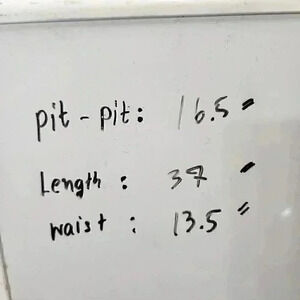 pit - pit: 16.5"
Length : 37"
waist : 13.5"